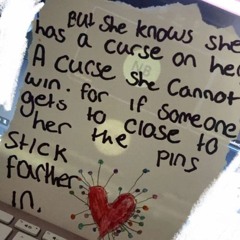 But she knows she
has a curse on her
A curse she cannot
win. for if someone
gets to close to
her the pins
stick
farther
in.